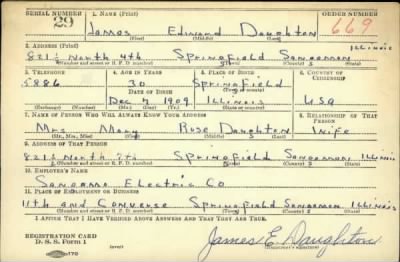 SERIAL NUMBER 1. NAME (Print) ORDER NUMBER
29 James Edward Daughton 669
(First) (Middle) (Last)
2. ADDRESS (Print) Illinois
821½ North 4th Springfield Sangamon
(Number and street or R. F. D. number) (Town) (County) (State)
3. TELEPHONE 4. AGE IN YEARS 5. PLACE OF BIRTH 6. COUNTRY OF CITIZENSHIP
5886 30 Springfield
DATE OF BIRTH (Town or county)
Dec 7 1909 Illinois USA
(Exchange) (Number) (Mo.) (Day) (Yr.) (State or country)
7. NAME OF PERSON WHO WILL ALWAYS KNOW YOUR ADDRESS 8. RELATIONSHIP OF THAT PERSON
Mrs Mary Rose Daughton Wife
(Mr., Mrs., Miss) (First) (Middle) (Last)
9. ADDRESS OF THAT PERSON
821½ North 7th Springfield Sangamon Illinois
(Number and street or R. F. D. number) (Town) (County) (State)
10. EMPLOYER'S NAME
Sangamo Electric Co
11. PLACE OF EMPLOYMENT OR BUSINESS
11th and Converse Springfield Sangamon Illinois
(Number and street or R. F. D. number) (Town) (County) (State)
I AFFIRM THAT I HAVE VERIFIED ABOVE ANSWERS AND THAT THEY ARE TRUE.
REGISTRATION CARD
D. S. S. Form 1 (over) James E. Daughton
(Registrant's signature)